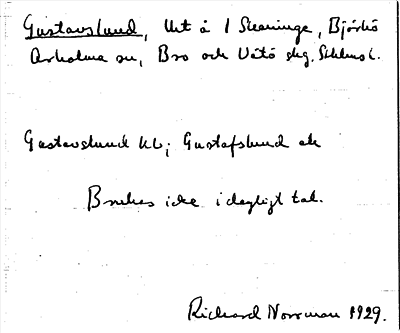 Gustavslund, Utt å 1 Skeninge, Björkö
Arholma sn, Bro och Vätö skg. Sthlms l.
Gustavslund kb; Gustafslund ek
Brukas icke i dagligt tal.
Richard Norrman 1929.